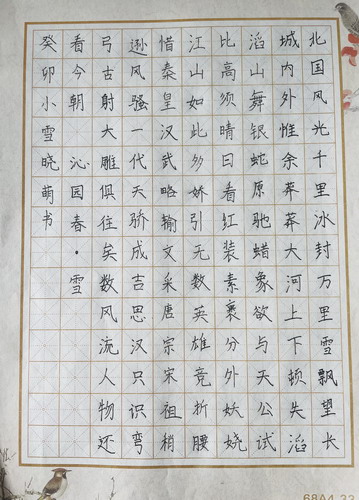 北国风光千里冰封万里雪飘望长
城内外惟余莽莽大河上下顿失滔
滔山舞银蛇原驰蜡象欲与天公试
比高须晴日看红装素裹分外妖娆
江山如此多娇引无数英雄竞折腰
惜泰皇汉武略输文采唐宗宋祖稍
逊风骚一代天骄成吉思汉只识弯
弓古射大雕俱往矣数风流人物还
看今朝 沁园春·雪
癸卯小雪晓萌书